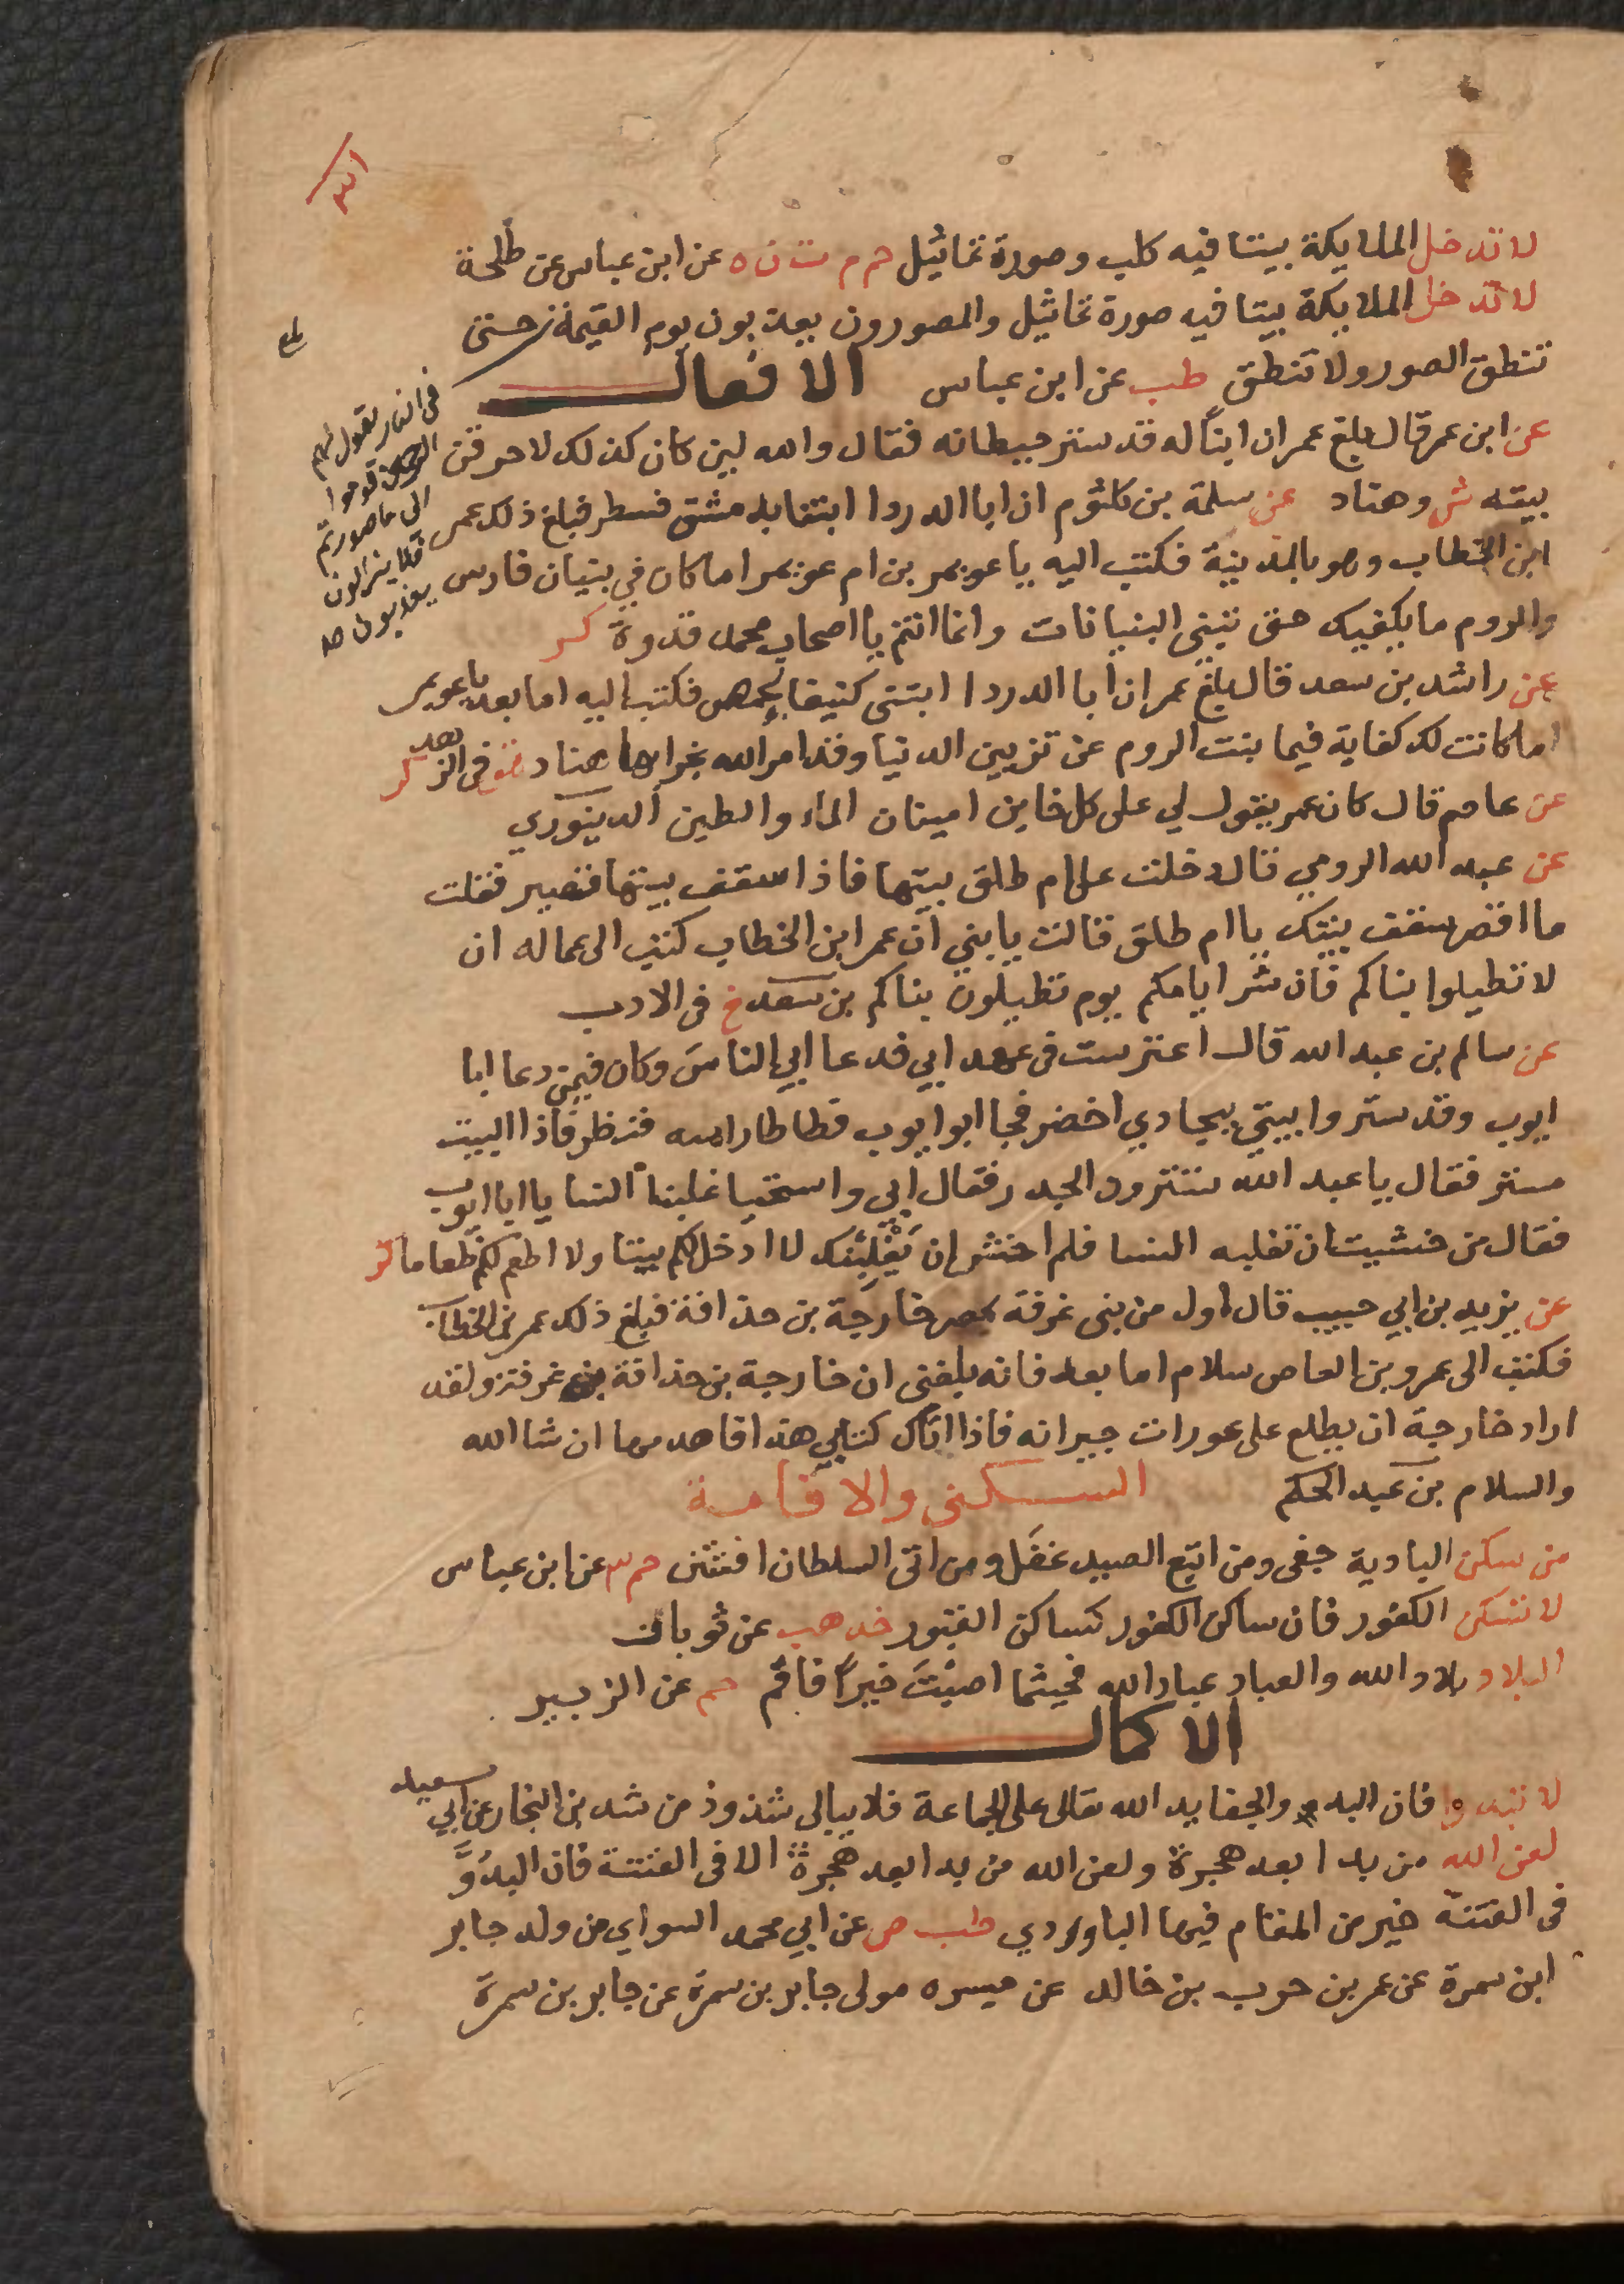 لا تدخل الملايكة بيتا فيه كلب وصورة تماثيل حم م ت ن ه عن ابن عباس عن طلحة
لا تدخل الملايكة بيتا فيه صورة تماثيل والمصورون يعذبون يوم القيمة حتى
تنطق الصور ولا تنطق طب عن ابن عباس الافعال
في النار يقول لهم
الرحمن قوموا
الى ما صورتم
فلا يزالون
يعذبون صح
عن ابن عمر قال بلغ عمر ان ابنا له قد ستر حيطانه فقال والله لين كان كذلك لاحرقن
بيته ش وهناد عن سلمة بن كلثوم ان ابا الدردا ابتنا بدمشق قسطر فبلغ ذلك عمر
ابن الخطاب وهو بالمدينة فكتب اليه يا عويمر بن ام عويمر اما كان في بنيان فارس
والروم ما يكفيك حتى تبنى البنيانات وانما انتم يا اصحاب محمد قدوة كر
عن راشد بن سعد قال بلغ عمر ان ابا الدردا ابتنى كنيفا بحمص فكتب اليه اما بعد يا عويمر
اما كانت لك كفاية فيما بنت الروم عن تزيين الدنيا وقد امر الله بخرابها هناد في الزهد كر
عن عاصم قال كان عمر يقول لي على كل خاين امينان الماء والطين الدينوري
عن عبد الله الرومي قال دخلت على ام طلق بيتها فاذا سقف بيتها قصير فقلت
ما اقصر سقف بيتك يا ام طلق قالت يا بني ان عمر ابن الخطاب كتب الى عماله ان
لا تطيلوا بناكم فان شر ايامكم يوم تطيلون بناكم بن سعد خ في الادب
عن سالم بن عبد الله قال اعترست في عهد ابي فدعا ابي الناس وكان فيمن دعا ابا
ايوب وقد ستروا بيتي ببجادي اخضر فجا ابو ايوب فطاطا راسه فنظر فاذا البيت
مستر فقال يا عبد الله تسترون الجدر فقال ابي واستحيا غلبنا النسا يا ابا ايوب
فقال من خشيت ان تغلبه النسا فلم اخش ان يغلبنك لا ادخل لكم بيتا ولا اطعم لكم طعاما كر
عن يزيد بن ابي حبيب قال اول من بنى غرفة بمصر خارجة بن حذافة فبلغ ذلك عمر بن الخطاب
فكتب الى عمرو بن العاص سلام اما بعد فانه بلغنى ان خارجة بن حذافة بنى غرفة ولقد
اراد خارجة ان يطلع على عورات جيرانه فاذا اتاك كتابي هذا فاهدمها ان شا الله
والسلام بن عبد الحكم السكنى والاقامة
من سكن البادية جفى ومن اتبع الصيد غفل ومن اتى السلطان افتتن حم ٣ عن ابن عباس
لا تسكن الكفور فان ساكن الكفور كساكن القبور خد هب عن ثوبان
البلاد بلاد الله والعباد عباد الله فحيثما اصبت خيرا فاقم حم عن الزبير
الاكمال
لا تبدوا فان البدو والجفا يد الله تعالى على الجماعة فلا يبالى شذوذ من شد بن النجار عن ابي سعيد
لعن الله من بدا بعد هجرة ولعن الله من بدا بعد هجرة الا فى الفتنة فان البدو
في الفتنة خير من المقام فيها الباوردي طب ص عن ابي محمد السواي من ولد جابر
ابن سمرة عن عمر بن حرب بن خالد عن ميسره مولى جابر بن سمرة عن جابر بن سمرة